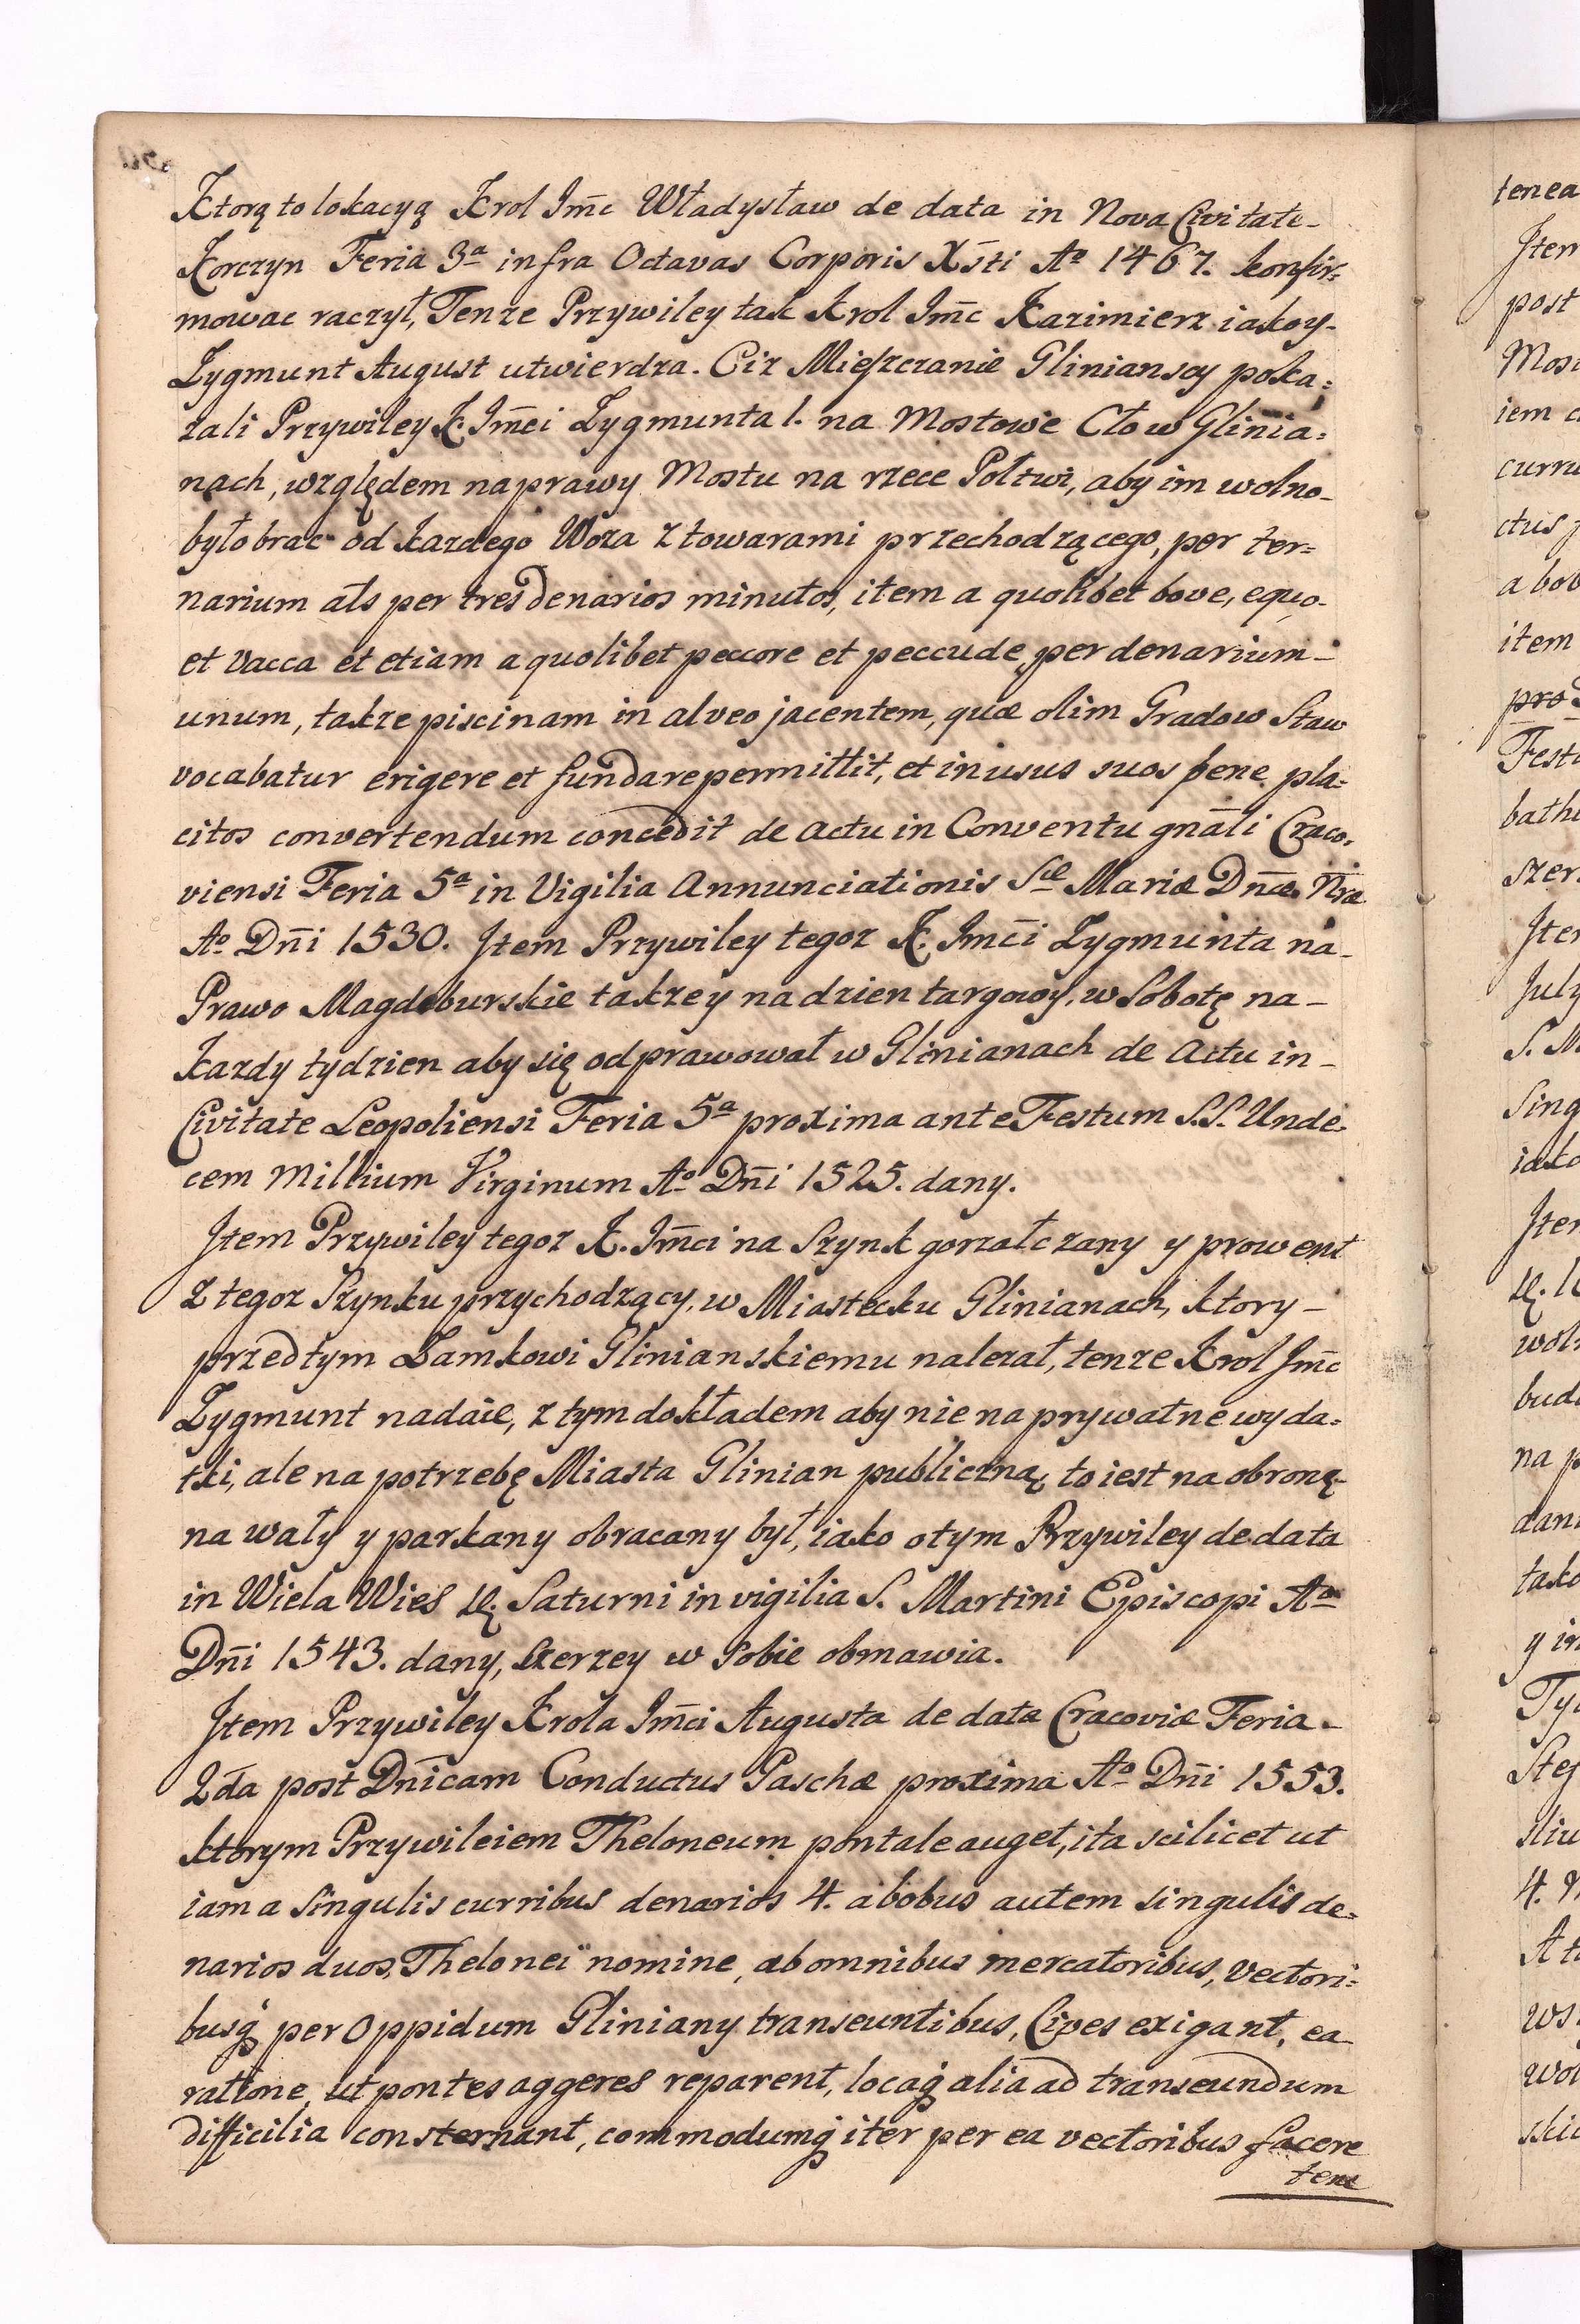 Ktorą to lokacyą Krol Jm̄c Władysław de data in Nova Civitate-
Korczyn Feria 3a infra Octavas Corporis Xs̄ti Ao 1467. konfir=
mowac raczył, Tenze Przywiley tak Krol Jm̄c Kazimierz iako y-
Zygmunt August utwierdza. Ciz Mieszczanie Glinianscy poka=
zali Przywiley K. Jm̄ci Zygmunta 1. na Mostowe Cło w Glinia=
nach, względem naprawy Mostu na rzece Połtwi, aby im wolno-
było brac od kazdego Woza z towarami przechodzącego, per ter=
narium als per tres denarios minutos, item a quolibet bove, equo-
et vacca et etiam a quolibet peccore et peccude per denarium-
unum, takze piscinam in alveo jacentem, quæ olim Gradow Staw
vocabatur erigere et fundare permittit, et in usus suos bene pla=
citos convertendum concedit de actu in Conventu gnāli Craco=
viensi Feria 5a in Vigilia Annunciationis Scæ Mariæ Dnæ Nræ
Ao Dn̄i 1530. Jtem Przywiley tegoz K. Jmc̄i Zygmunta na-
Prawo Magdeburskie takze y na dzien targowy, w Sobotę na-
kazdy tydzien aby się odprawował w Glinianach de Actu in-
Civitate Leopoliensi Feria 5a proxima ante Festum S.S. Unde=
cem Millium Virginum Ao Dn̄i 1525. dany.
Jtem Przywiley tegoz K. Jm̄ci na Szynk gorzałczany y prowent
z tegoz Szynku przychodzący, w Miastecku Glinianach, ktory-
przedtym Zamkowi Glinianskiemu nalezał, tenze Krol Jm̄c
Zygmunt nadaie, z tym dokładem aby nie na prywatne wyda=
tki, ale na potrzebę Miasta Glinian publiczną, to iest na obronę-
na wały y parkany obracany był, iako o tym Przywiley de data
in Wiela Wies Saturni in vigilia S. Martini Episcopi Ao
Dn̄i 1543. dany, szerzey w sobie obmawia.
Jtem Przywiley Krola Jm̄ci Augusta de data Cracoviæ Feria-
2da post Dn̄icam Conductus Paschæ proxima Ao Dn̄i 1553.
ktorym Przywileiem Theloneum pontale auget, ita scilicet ut
iam a singulis curribus denarios 4. a bobus autem singulis de=
narios duos, Thelonei nomine, ab omnibus mercatoribus, vectori=
busq́ per Oppidum Gliniany transeuntibus, Cives exigant, ea
ratione, ut pontes aggeres reparent, locaq́ alia ad transeundum
difficilia consternant, commodumq́ iter per ea vectoribus facere
tene
tenea
Jtem
post
Most
curru
ctus
a bob
item
pro
Festo
bathi
szer
Jter
July
S. M
Sing
iako
Jter
wol
bud
na p
dani
tako
y in
Ty
Step
sliw
4.
At
ws
wol